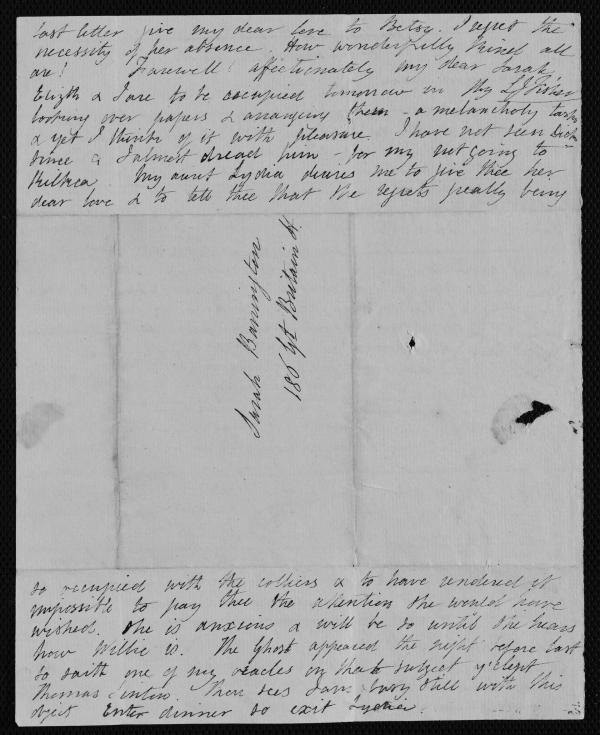 last letter give my dear love to Betsy. I regret the
necessity of her absence. How wonderfully kind all
are! Farewell! affectionately my dear Sarah
Elizth & I are to be occupied tomorrow in thy
looking over papers & arranging them - a melancholy task
& yet I think of it with pleasure. I have not seen
since & I almost dread him - for my not going to
Kilkea. My aunt Lydia desires me to give thee her
dear love & to tell thee that she regrets greatly being
Sarah Barrington
186 Gt Britain St.
so occupied with the colliers & to have rendered it
impossible to pay thee the attention she would have
wished. She is anxious & will be so until she hears
how Willie is. The ghost appeared the night before last
so saith one of my oracles on that subject y'clept
Thomas . Thou sees I am busy still with this
object Enter dinner so exit Lydia.